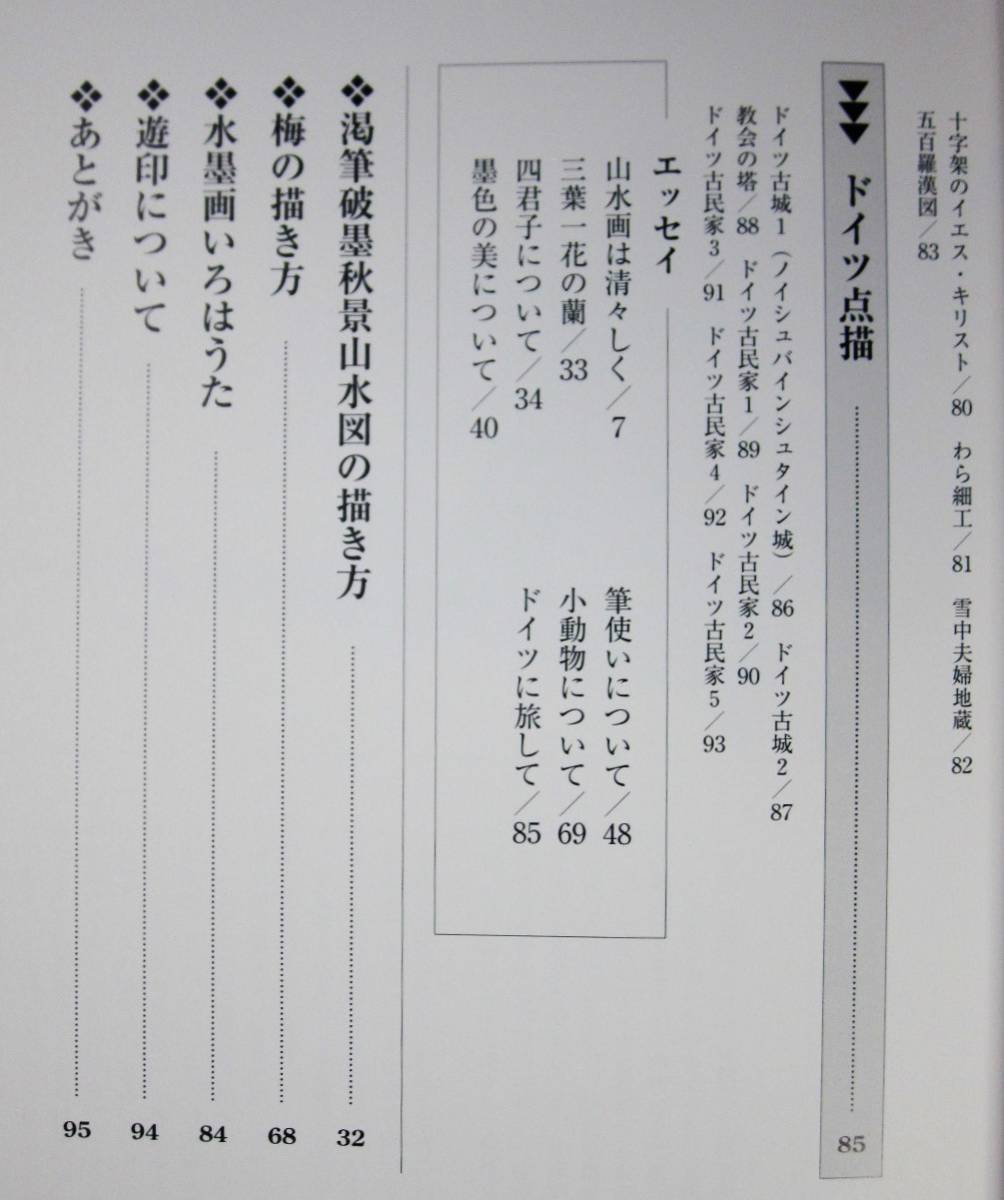 十字架のイエス・キリスト／80　わら細工／81　雪中夫婦地蔵／82
五百羅漢図／83
▼▼▼ ドイツ点描 …… 85
ドイツ古城1（ノイシュバインシュタイン城）／86　ドイツ古城2／87
教会の塔／88　ドイツ古民家1／89　ドイツ古民家2／90
ドイツ古民家3／91　ドイツ古民家4／92　ドイツ古民家5／93
エッセイ
山水画は清々しく／7
三葉一花の蘭／33
四君子について／34
墨色の美について／40
筆使いについて／48
小動物について／69
ドイツに旅して／85
❖渇筆破墨秋景山水図の描き方 …… 32
❖梅の描き方 …… 68
❖水墨画いろはうた …… 84
❖遊印について …… 94
❖あとがき …… 95